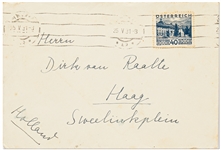 ÖSTERREICH
40
Herrn
Dirk van Raalte
Haag
Sweelinckplein
Holland